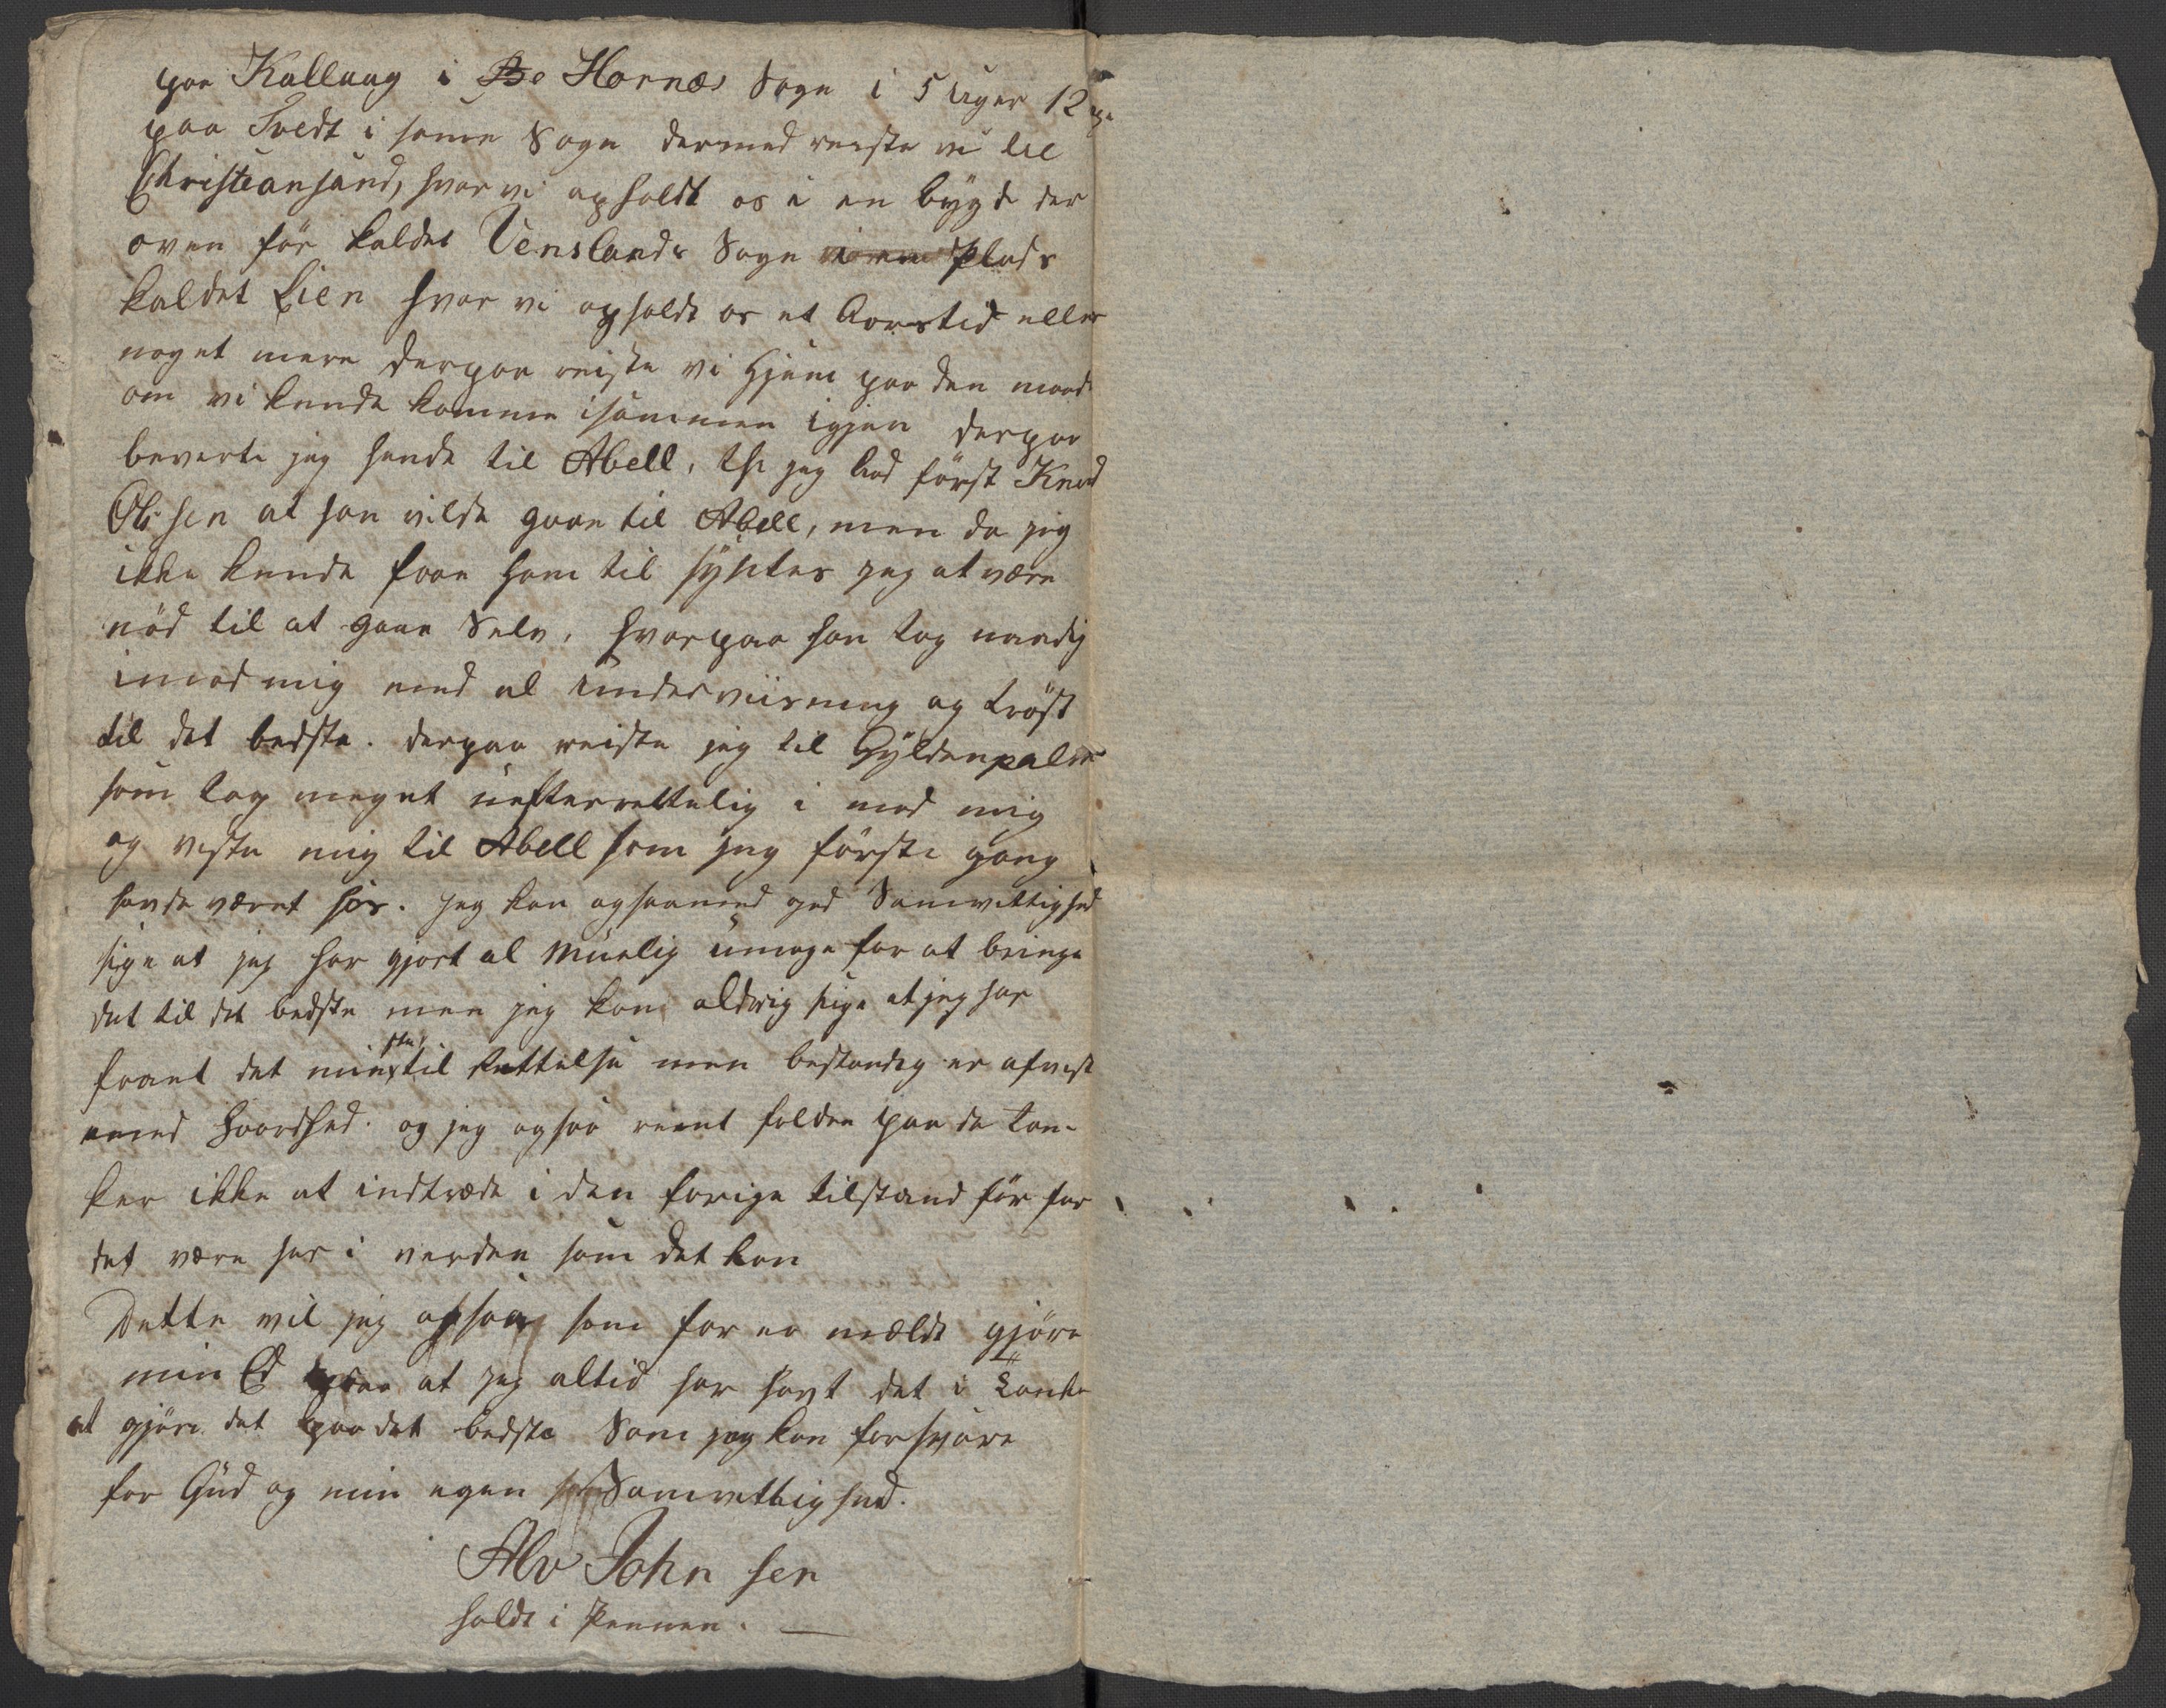 paa Kallaag i Hornæs Sogn i 5 uger 12
paa Tvedt i same Sogn dermed reiste vi til
Christiansand, hvor vi opholdt os i en bygd der
oven for kaldet Venslands Sogn i en Plads
kaldet Lien hvor vi opholdt os et Aarstid eller
noget mere derpaa reiste vi Hjem paa den maade
om vi kunde komme isammen igjen derpaa
beverte jeg hende til Abell, thi jeg bad først Knud
Olsen at han vilde gaae til Abell, men da jeg
ikke kunde faae ham til syntes jeg at være
nød til at gaae Selv, hvorpaa han tog
imod mig med al underviisning og trøst
til det bedste. derpaa reiste jeg til Gyldenpalm
som tog meget uefterrettelig i mod mig
og viste mig til Abell som jeg første gang
havde været hos. jeg kan ogsaa med god Samvittighed
sige at jeg har gjort al Muelig umage for at bringe
det til det bedste men jeg kan aldrig sige at jeg har
faaet det minste til Rettelse men bestandig er afvist
med Haardhed. og jeg ogsaa reent falden paa de tan-
ker ikke at indtræde i den forige tilstand før for
det være her i verden som det kan
Dette vil jeg ogsaa som for er meldt gjøre
min Ed paa at jeg altid har havt det i Tanke
at gjøre det paa det bedste Som jeg kan forsvare
for Gud og min egen Samvittighed.
Alv Johnsen
holdt i Pennen. —